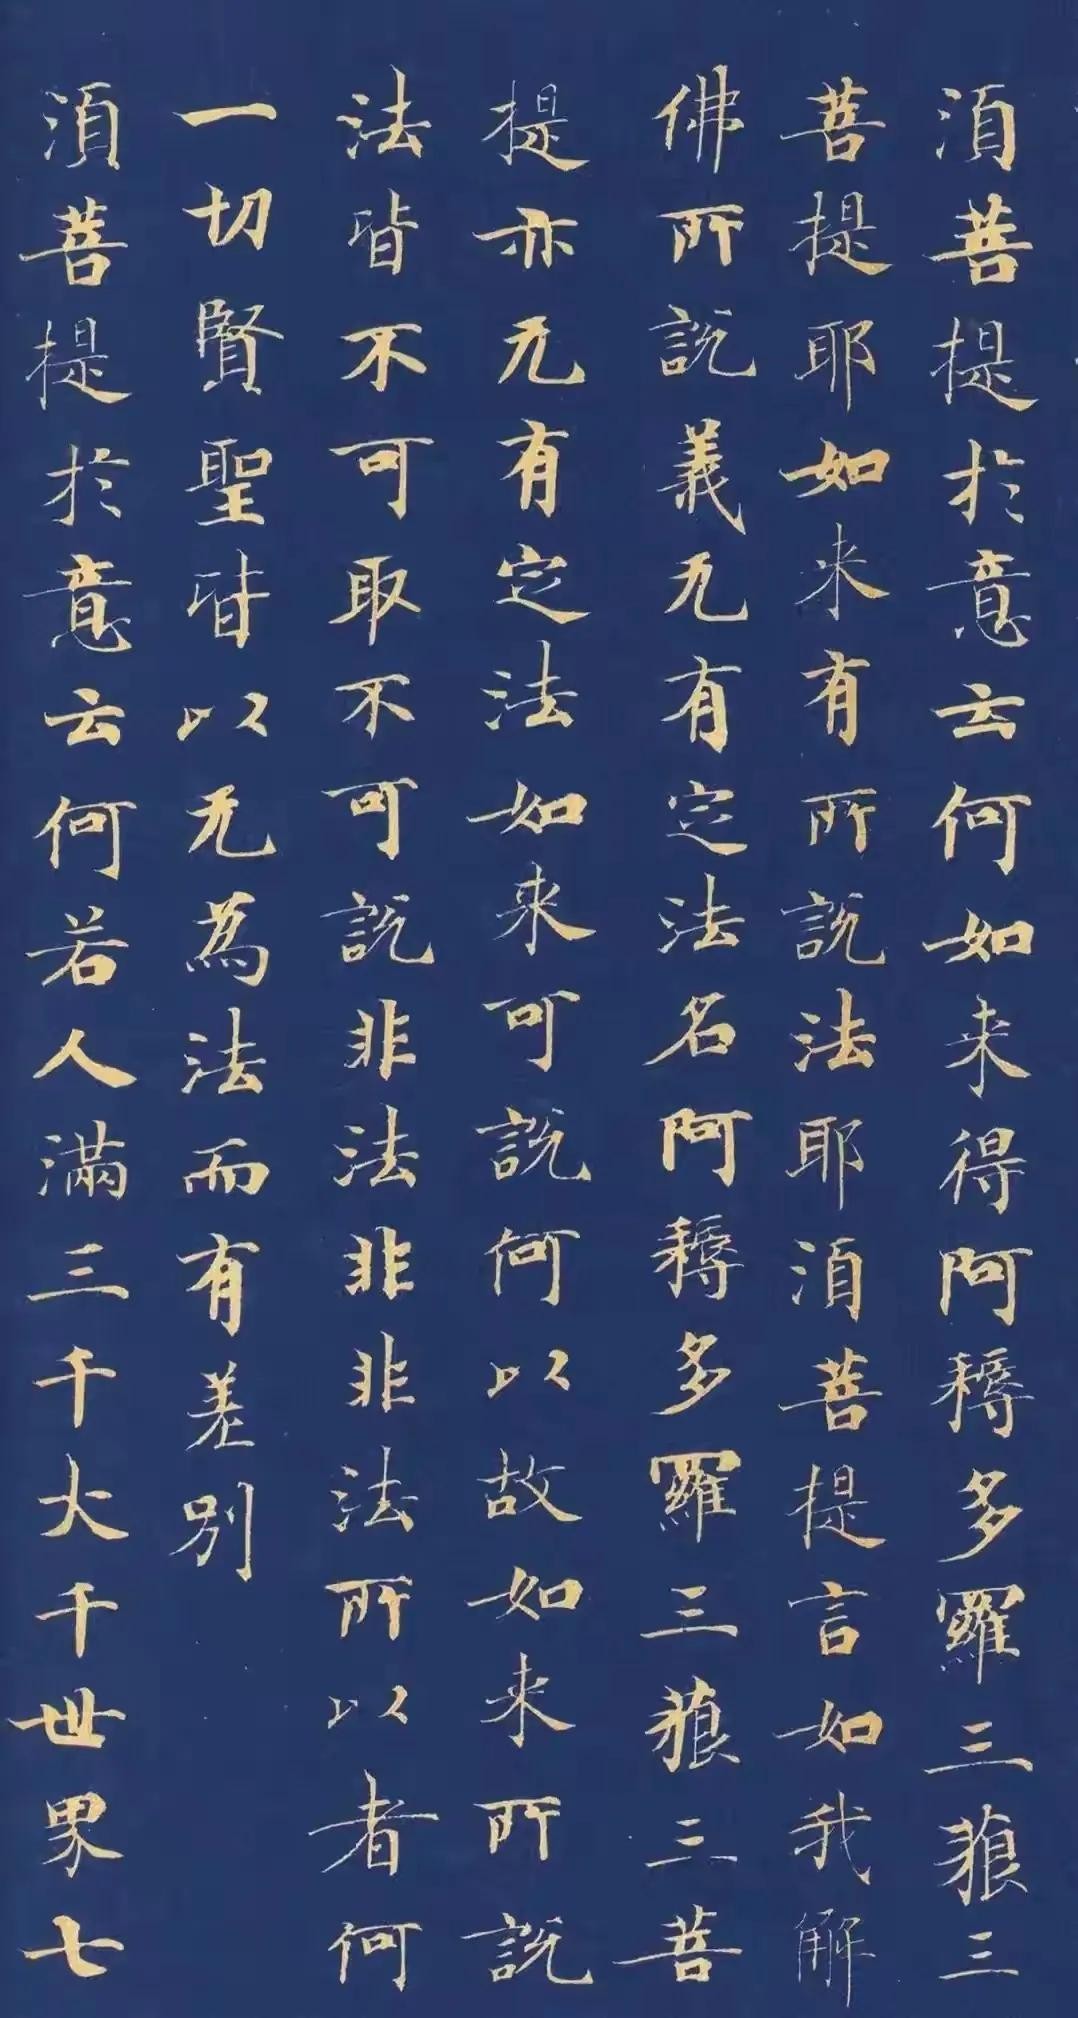 湏菩提於意云何如来得阿耨多羅三藐三
菩提耶如来有所說法耶湏菩提言如我解
佛所說義无有定法名阿耨多羅三藐三菩
提亦无有定法如来可說何以故如来所說
法皆不可取不可說非法非非法所以者何
一切賢聖皆以无為法而有差別
湏菩提於意云何若人滿三千大千世界七